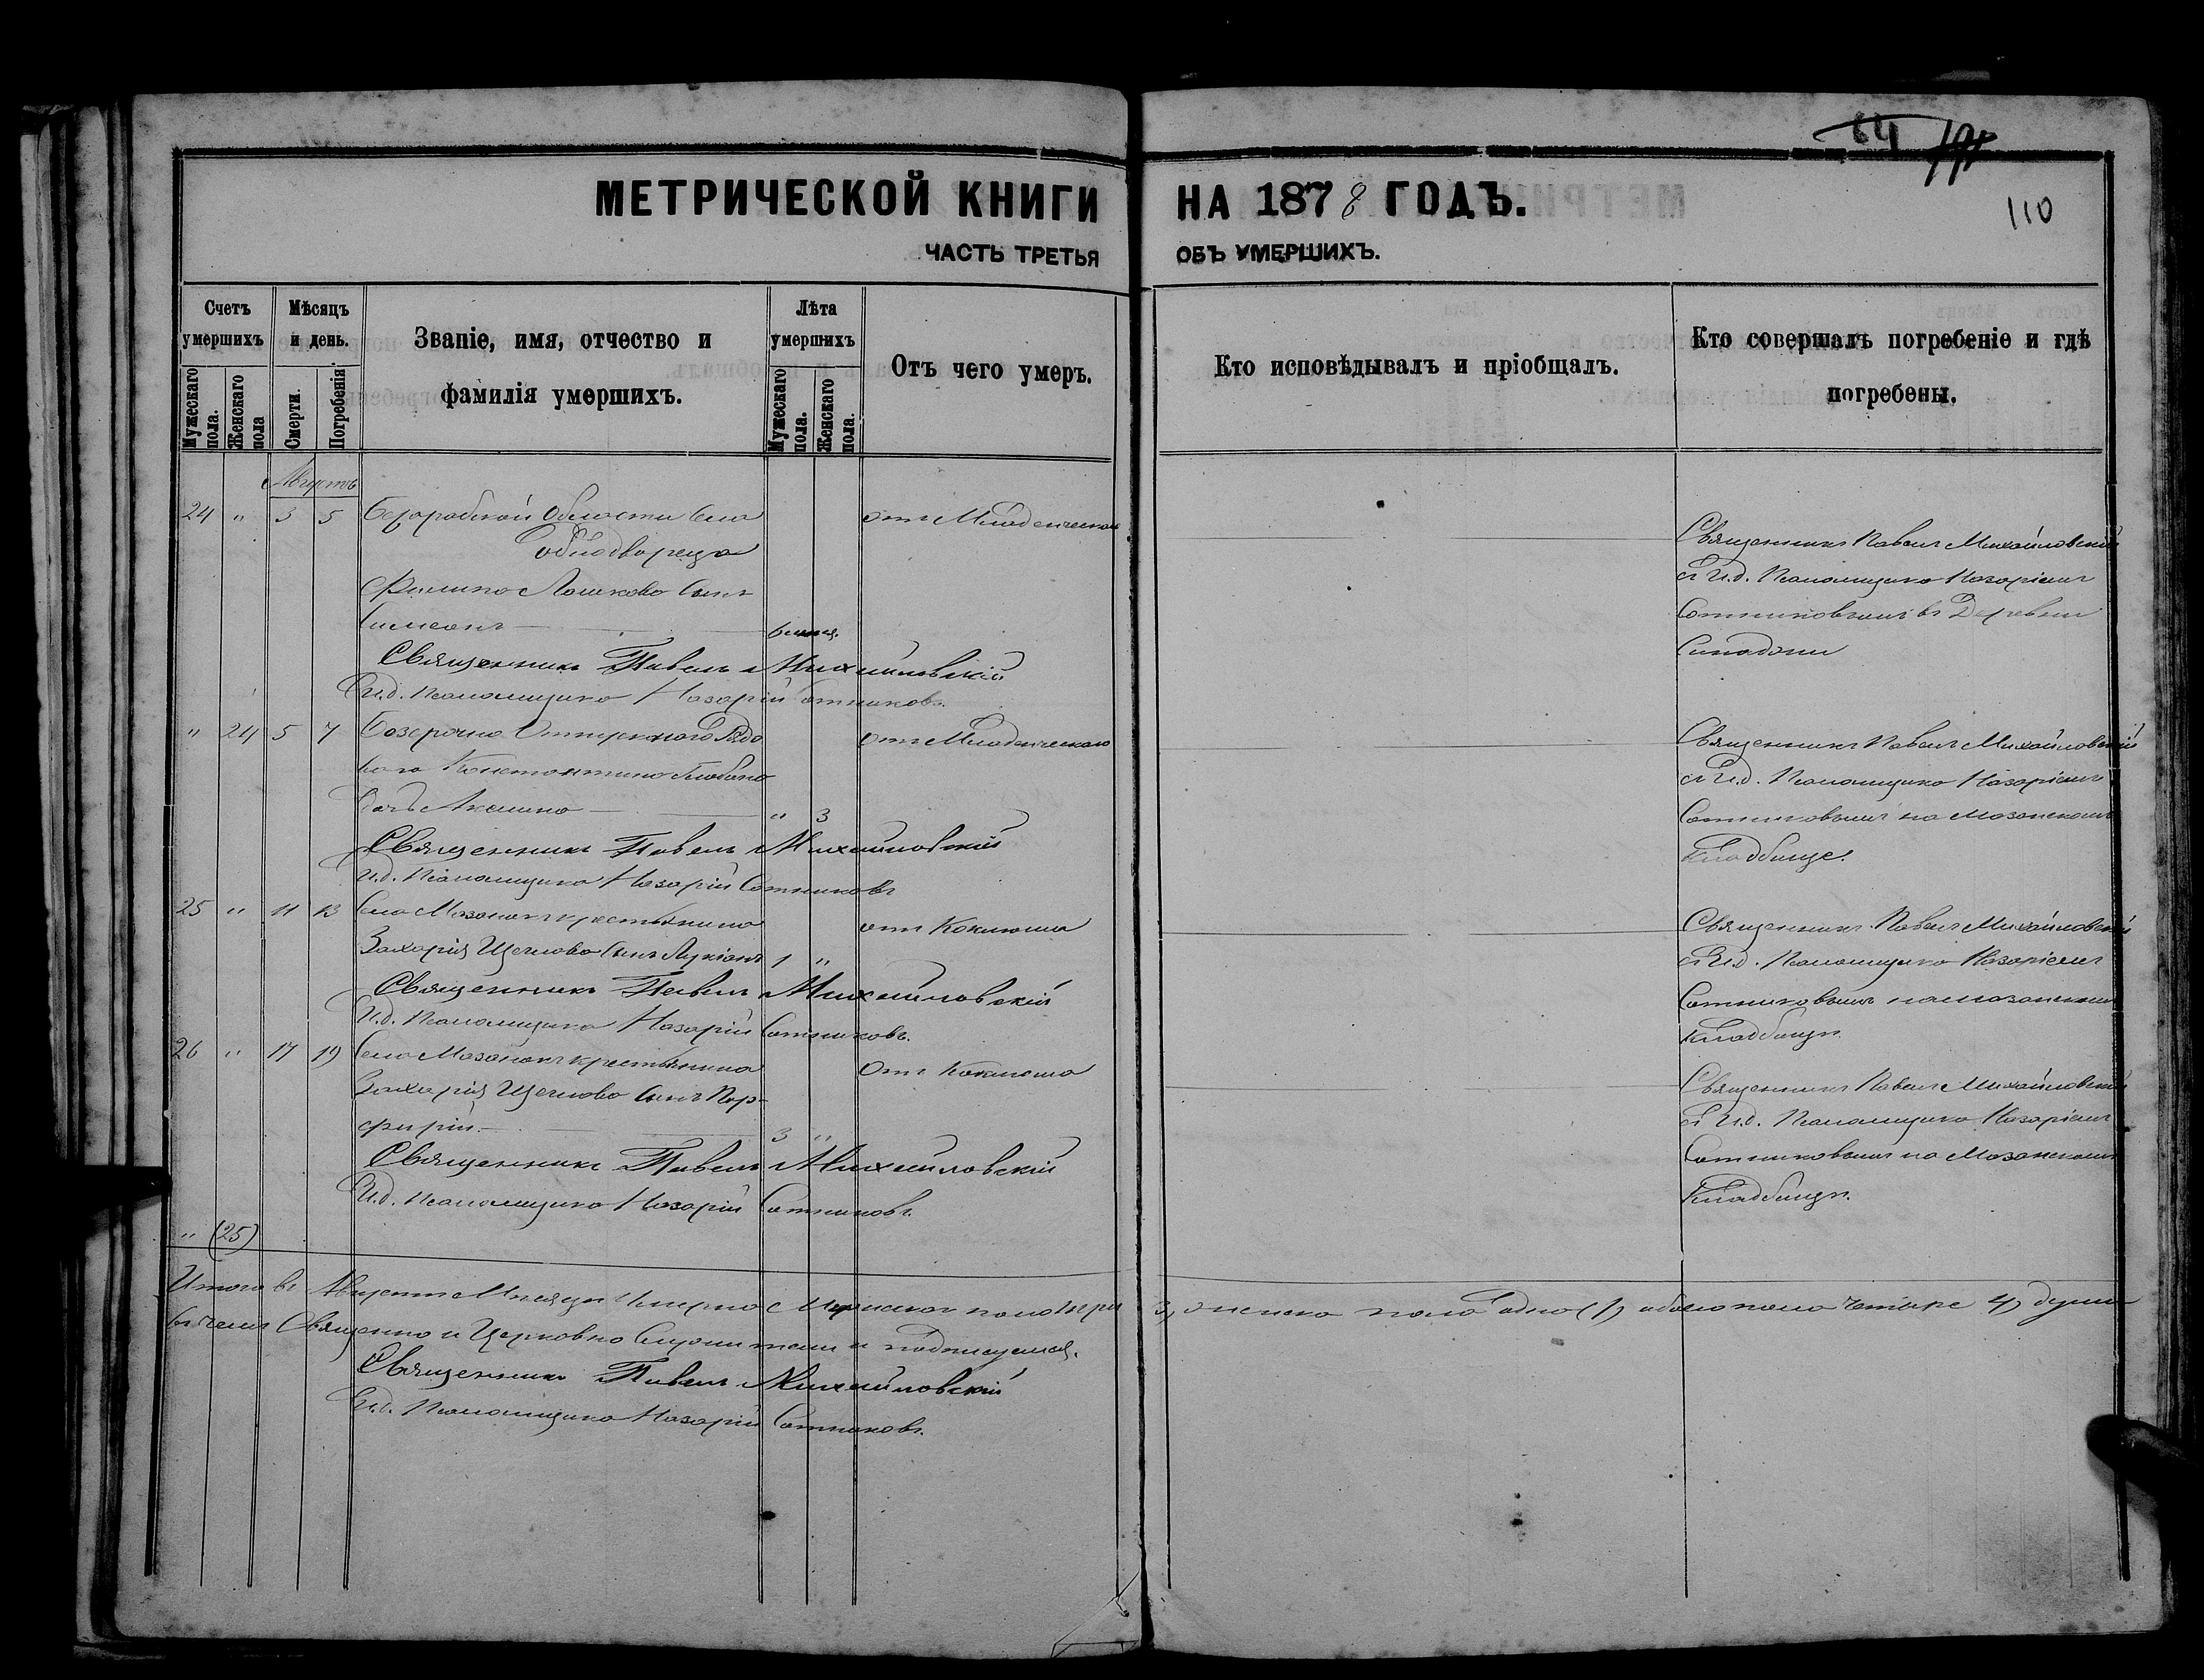 64
110
МЕТРИЧЕСКОЙ КНИГИ НА 1878 ГОДЪ.
ЧАСТЬ ТРЕТЬЯ ОБЪ УМЕРШИХЪ.
Счетъ умершихъ
Мужескаго пола.
Женскаго пола
Мѣсяцъ и день.
Смерти.
Погребенія.
Званіе, имя, отчество и фамилія умершихъ.
Лѣта умершихъ
Мужескаго пола.
Женскаго пола.
Отъ чего умеръ.
Кто исповѣдывалъ и пріобщалъ.
Кто совершалъ погребеніе и гдѣ погребены.
Августъ
24 " 3 5 Области Села
Филипа Сынъ
Симеонъ
Священникъ Павелъ Михайловскій
И.д. Пономщика Назарій Сотниковъ.
Священникъ Павелъ Михайловскій
съ И.д. Пономщика Назаріемъ
Сотниковымъ въ Деревни
" 24 5 7 Рядо
ваго Константина
дочь Акилина " 3
Священникъ Павелъ Михайловскій
И.д. Пономщика Назарій Сотниковъ
Священникъ Павелъ Михайловскій
съ И.д. Пономщика Назаріемъ
Сотниковымъ на Мазанскомъ
Кладбище.
25 " 11 13 Села Мазанокъ крестьянина отъ Коклюша
Захарія Щеглова Сынъ Лукіанъ 1 "
Священникъ Павелъ Михайловскій
И.д. Пономщика Назарій Сотниковъ.
Священникъ Павелъ Михайловскій
съ И.д. Пономщика Назаріемъ
Сотниковымъ на мазанскомъ
Кладбищѣ.
26 " 17 19 Села Мазанокъ крестьянина Отъ Коклюша
Захарія Щеглова Сынъ Пор-
фирій. 3 "
Священникъ Павелъ Михайловскій
И.д. Пономщика Назарій Сотниковъ.
Священникъ Павелъ Михайловскій
съ И.д. Пономщика Назаріемъ
Сотниковымъ на Мазанскомъ
Кладбищѣ.
" (25)
Итого въ Августѣ Месяцѣ Умерло Мужеска пола три 3, женска пола одно (1) обоего пола четыре 4) души
въ чемъ Священно и Церковно Служители и подписуемся.
Священникъ Павелъ Михайловскій
И.д. Пономщика Назарій Сотниковъ.